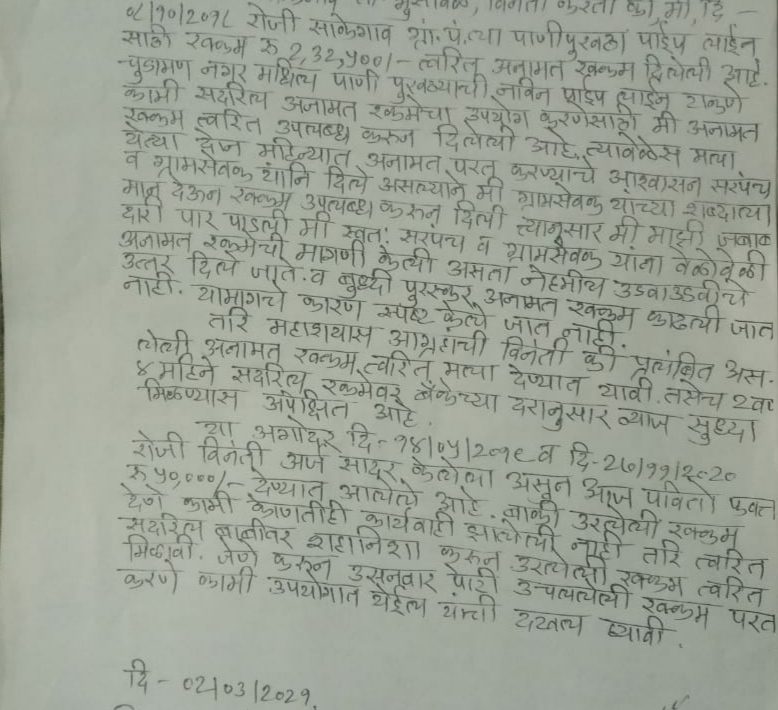 भुसावळ, विनंती करतो की, मी, दि -
०८/१०/२०१८ रोजी साकेगाव ग्रा.पं.त्या पाणीपुरवठा पाईप लाईन
साठी रक्कम रु २,३२,५००/- त्वरित अनामत रक्कम दिलेली आहे.
नगर मधिल पाणी पुरवठ्याची नविन पाईप लाईन टाकणे
कामी सदरिल अनामत रकमेचा उपयोग करणेसाठी मी अनामत
रक्कम त्वरित उपलब्ध करून दिलेली आहे, त्यावेळेस मला
येत्या दोन महिन्यात अनामत परत करण्याचे आश्वासन सरपंच
व ग्रामसेवक यांनि दिले असल्याने मी ग्रामसेवक यांच्या शब्दाला
मान देऊन रक्कम उपलब्ध करून दिली त्यानुसार मी माझी जबाब
दारी पार पाडली मी स्वतः सरपंच व ग्रामसेवक यांना वेळोवेळी
अनामत रकमेची मागणी केली असता नेहमीच उडवाउडवीचे
उत्तर दिले जाते. व बुध्दी पुरस्कर अनामत रक्कम काढली जात
नाही. यामागचे कारण स्पष्ट केले जात नाही.
तरि महाशयास आग्रहाची विनंती की प्रलंबित अस-
लेली अनामत रक्कम त्वरित मला देण्यात यावी. तसेच २ वर्ष
४ महिने सदरिल रकमेवर बँकेच्या दरानुसार व्याज सुध्दा
मिळण्यास अपेक्षित आहे.
या अगोदर दि- १४/०५/२०१९ व दि-२७/११/२०२०
रोजी विनंती अर्ज सादर केलेला असून आज पावेतो फक्त
रु ५०,०००/- देण्यात आलेले आहे. बाकी उरलेली रक्कम
देणे कामी कोणतीही कार्यवाही झालेली नाही तरि त्वरित
सदरिल बाबीवर शहानिशा करून उरलेली रक्कम त्वरित
मिळावी. जेणे करून उसनवार पाटी उचललेली रक्कम परत
करणे कामी उपयोगात येईल याची दखल घ्यावी.
दि - ०२/०३/२०२१.